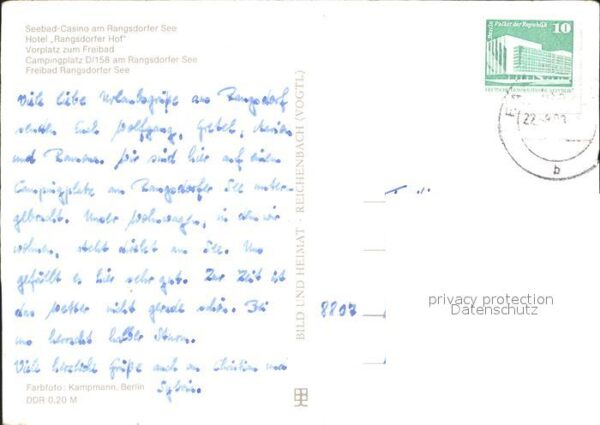 Seebad-Casino am Rangsdorfer See
Hotel „Rangsdorfer Hof"
Vorplatz zum Freibad
Campingplatz D/158 am Rangsdorfer See
Freibad Rangsdorfer See
Viele liebe Urlaubsgrüße aus Rangsdorf
senden Euch Wolfgang,
und Ramona. Wir sind hier auf einem
Campingplatz am Rangsdorfer See unter-
gebracht. Unser Wohnwagen, in dem wir
wohnen, steht direkt am See. Uns
gefällt es hier sehr gut. Zur Zeit ist
das Wetter nicht gerade schön. Bei
uns herrscht halber Sturm.
Viele herzliche Grüße auch an Christian und
Sylvia.
Farbfoto: Kampmann, Berlin
DDR 0,20 M
BILD UND HEIMAT · REICHENBACH (VOGTL)
Berlin Palast der Republik
10
b
8807
privacy protection
Datenschutz